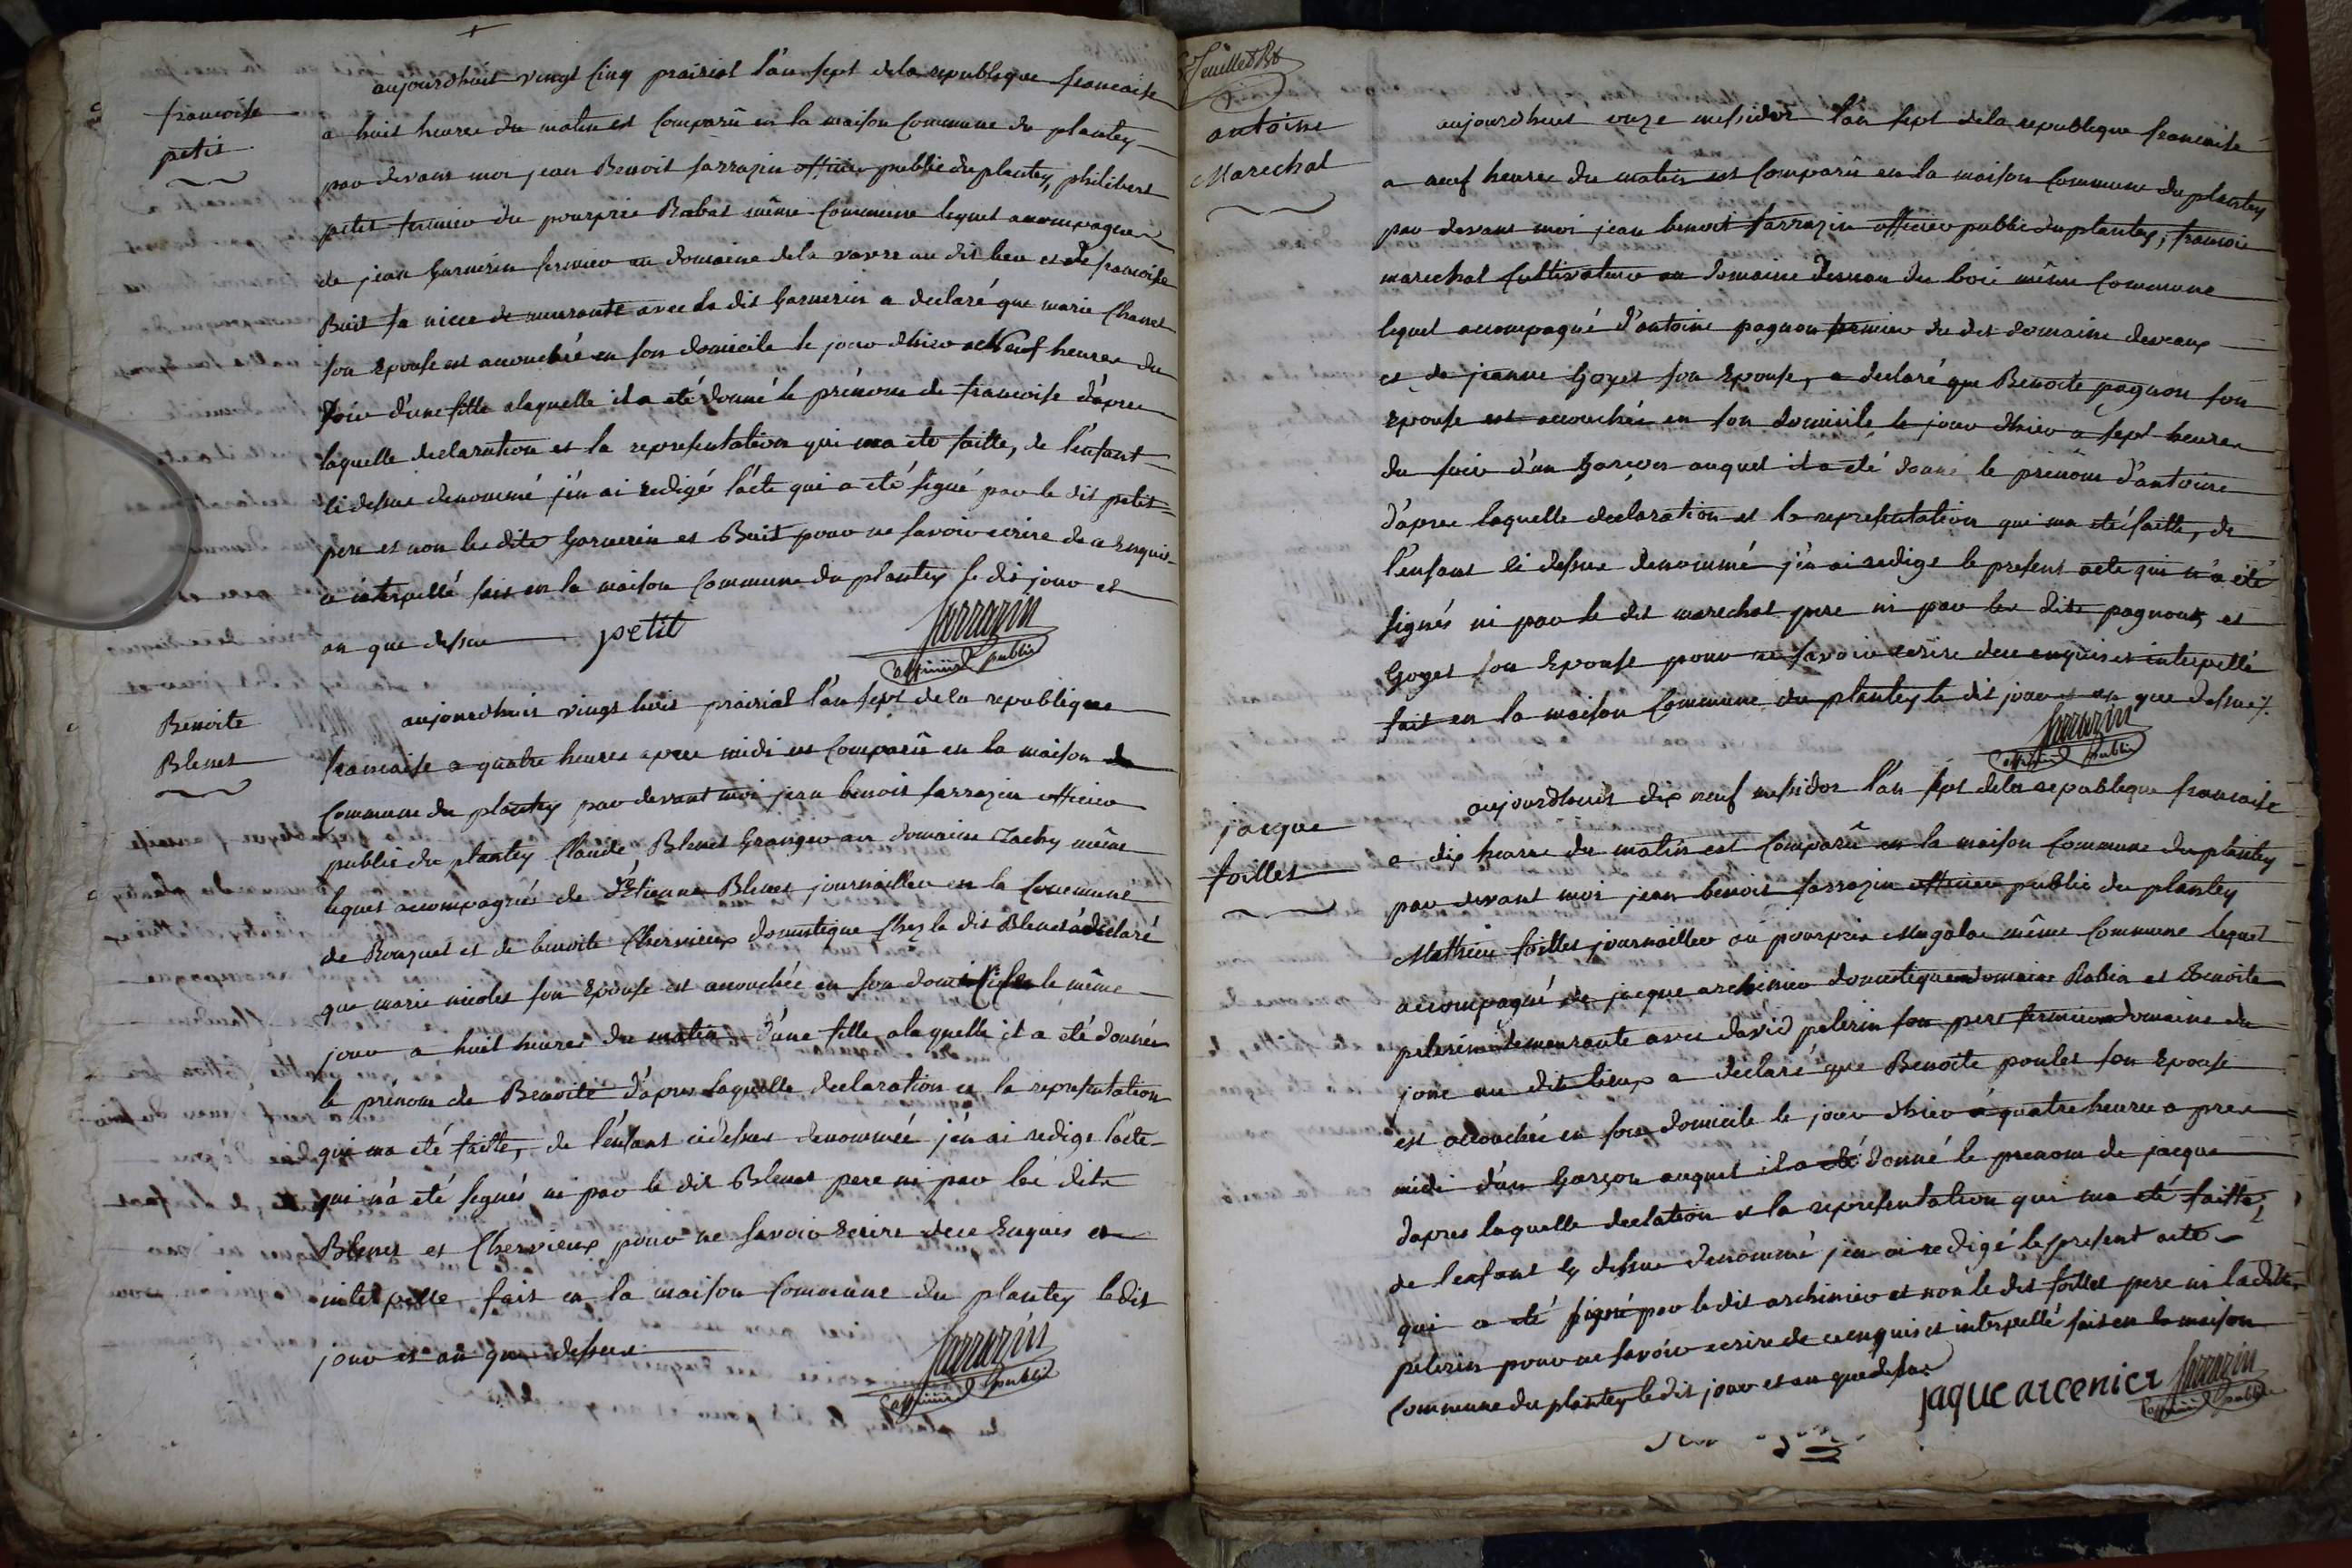 francoise
petit
aujourdhuit vingt cinq prairial l'an sept de la republique francaise
a huit heures du matin est comparû en la maison commune du plantey
par devant moi jean Benoit sarrazin officier public du plantey, philibert
petit fermier du pourprie Rabat même commune lequel accompagner
de jean Garnerin fermier au domaine de la au dit lieu et de francoise
Buit sa niece demeurante avec le dit Garnerin a declaré que marie
son Epouse est accouchée en son domicile le jour d'hier a Neuf heures du
soir d'une fille alaquelle il a eté donné le prénom de francoise d'apres
laquelle declaration et la representation qui ma ete faitte, de l'enfant
ci dessus denommé j'en ai redigé l'acte qui a eté signé par le dit petit
pere et non les dits Garnerin et Buit pour ne savoir ecrire de ce Enquis
et interpellé fait en la maison commune du plantey le dit jour et
an que dessus petit Sarrazin
officier public
Benoite
Blenet
aujourdhuit vingt huit prairial l'an sept de la republique
francaise a quatre heures apres midi est comparû en la maison
commune du plantey par devant moi jean benoit sarrazin officier
public du plantey Claude Blenet Granger au domaine même
lequel accompagné de Etienne Blenet journaillier en la commune
de et de benoite Chervieux domestique chez le dit Blenet a declaré
que marie nicolet son Epouse est accouchée en son domicile le même
jour a huit heures du matin d'une fille alaquelle il a eté donnée
le prénom de Benoite d'apres laquelle declaration et la representation
qui ma eté faitte, de l'enfant cidessus denommée j'en ai redigé l'acte
qui n'a eté signés ni par le dit Blenet pere ni par les dits
Blenet et Chervieux pour ne savoir Ecrire de ce Enquis et
interpelle fait en la maison commune du plantey le dit
jour et an que dessus Sarrazin
officier public
feuillet
antoine
Marechal
aujourdhuit onze messidor l'an sept de la republique francaise
a neuf heures du matin est comparû en la maison commune du plantey
par devant moi jean benoit sarrazin officier public du plantey, francois
marechal cultivateur au domaine du bois même commune
lequel accompagné d'antoine pagnon fermier du dit domaine
et de jeanne Goyet son Epouse, a declaré que Benoite pagnon son
Epouse est accouchée en son domicile le jour d'hier a sept heures
du soir d'un Garçon auquel il a eté donné le prénom d'antoine
d'apres laquelle declaration et la representation qui ma eté faitte, de
l'enfant ci dessus denommé j'en ai redige le present acte qui n'a été
signés ni par le dit marechal pere ni par les dits pagnon et
Goyet son Epouse pour ne savoir ecrire de ce enquis et interpellé
fait en la maison commune du plantey le dit jour et an que dessus
Sarrazin
officier public
jacque
foillet
aujourdhuit dix neuf messidor l'an sept de la republique francaise
a dix heures du matin est comparû en la maison commune du plantey
par devant moi jean benoit sarrazin officier public du plantey
Mathieu foillet journaillier au pourprix même commune lequel
accompagné de jacque archinier domestique au domaine Rabia et Benoite
pelerin demeurante avec david pelerin son pere fermier au domaine du
jonc au dit lieux a declaré que Benoite poulet son Epouse
est accouchée en son domicile le jour d'hier a quatre heures apres
midi d'un Garçon auquel il a eté donné le prenom de jacque
d'apres laquelle declation et la representation qui ma eté faitte,
de l'enfant cy dessus denommé j'en ai redigé le present acte
qui a eté signé par le dit archinier et non le dit foillet pere ni la ditte
pelerin pour ne savoir ecrire de ce enquis et interpellé fait en la maison
commune du plantey le dit jour et an que dessus
jaque arcenier Sarrazin
officier public